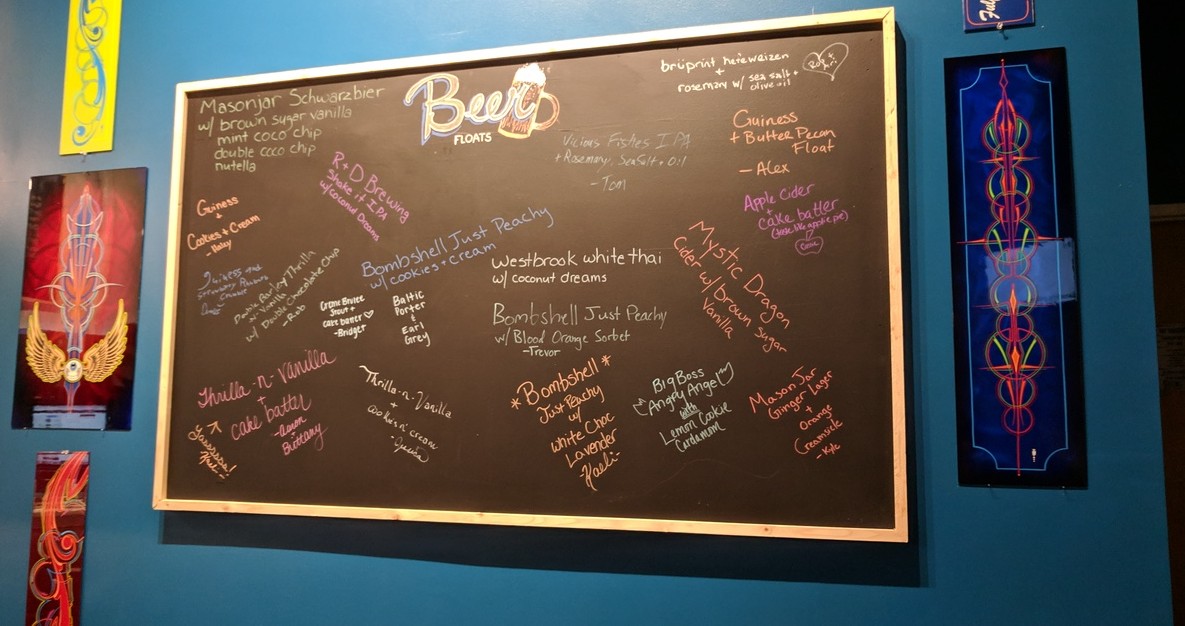 Masonjar Schwarzbier
w/ brown suger vanilla
mint coco chip
double coco chip
nutella
Beer
FLOATS
brüprint hefeweizen
+
rosemary w/ sea salt +
olive oil
Vicious Fishes IPA
+ Rosemary, Sea Salt + Oil
- Tom
Guiness
+ Butter Pecan
Float
- Alex
R+D Brewing
Shake it IPA
w/ coconut Dreams
Apple Cider
+
cake batter
(taste like apple pie)
Guiness
+
Cookies + Cream
Bombshell Just Peachy
w/ cookies + cream
Westbrook white thai
w/ coconut dreams
Mystic Dragon
Cider w/ brown sugar
Vanilla
Double Barley Thrilla
n Vanilla
w/ Double Chocolate Chip
- Rob
Creme Brulee
Stout +
cake batter
- Bridger
Baltic
Porter
&
Earl
Grey
Bombshell Just Peachy
w/ Blood Orange Sorbet
- Trevor
Thrilla-n-Vanilla
+
cake batter
- aaron
Brittany
Thrilla-n-Vanilla
+
cookies n' cream
- Jessica
* Bombshell *
Just Peachy
w/
White Choc
Lavender
- Kaeli -
Big Boss
Angry Angel
with
Lemon Cookie
Cardamom
Mason Jar
Ginger Lager
+
Orange
Creamsicle
- Kyle